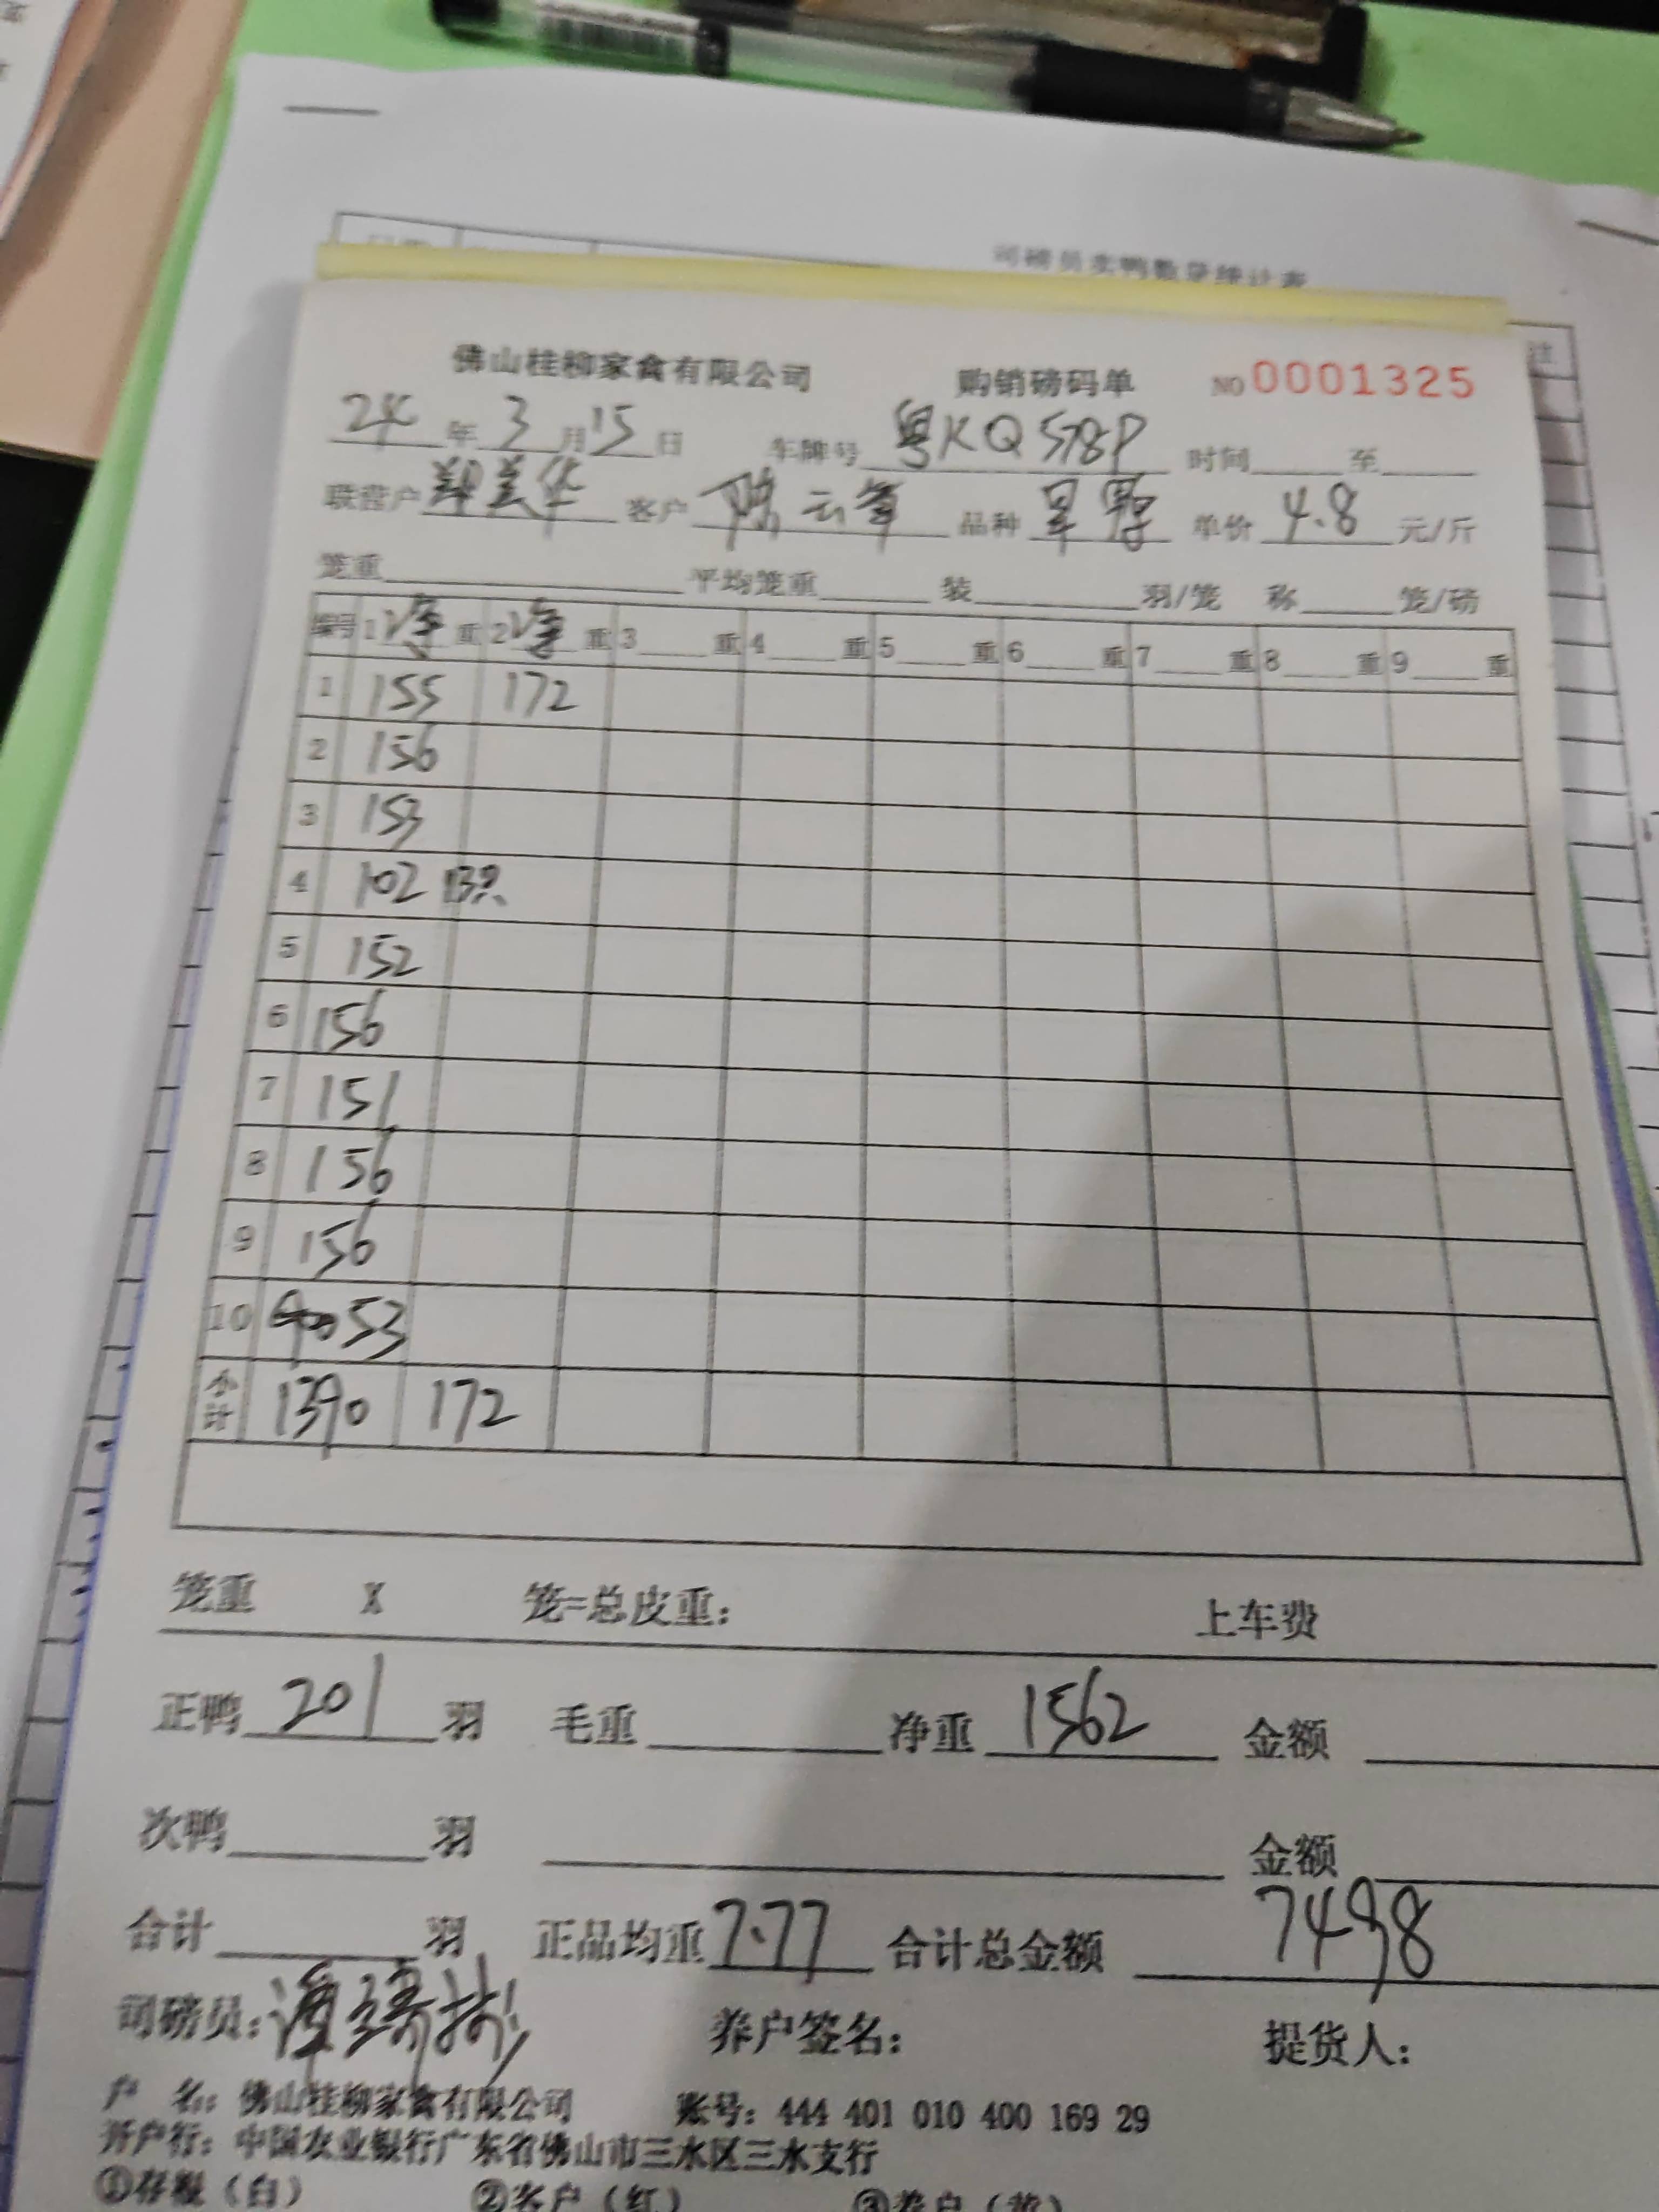 司磅员卖鸭数量统计表
佛山桂柳家禽有限公司 购销磅码单 NO 0001325
24 年 3 月 15 日 车牌号 粤KQ578P 时间 至
联营户 郑美华 客户 陈云峯 品种 单价 4.8 元/斤
笼重 平均笼重 装 羽/笼 称 笼/磅
编号 1 净 重 2 净 重 3 重 4 重 5 重 6 重 7 重 8 重 9 重
1 155 172
2 156
3 153
4 102 13只
5 152
6 156
7 151
8 156
9 156
10 53
小计 1390 172
笼重 X 笼=总皮重: 上车费
正鸭 201 羽 毛重 净重 1562 金额
次鸭 羽 金额
合计 羽 正品均重 7.77 合计总金额 7498
司磅员: 养户签名: 提货人:
户 名: 佛山桂柳家禽有限公司 账号: 444 401 010 400 169 29
开户行: 中国农业银行广东省佛山市三水区三水支行
①存根(白) ②客户(红) ③养户(黄)